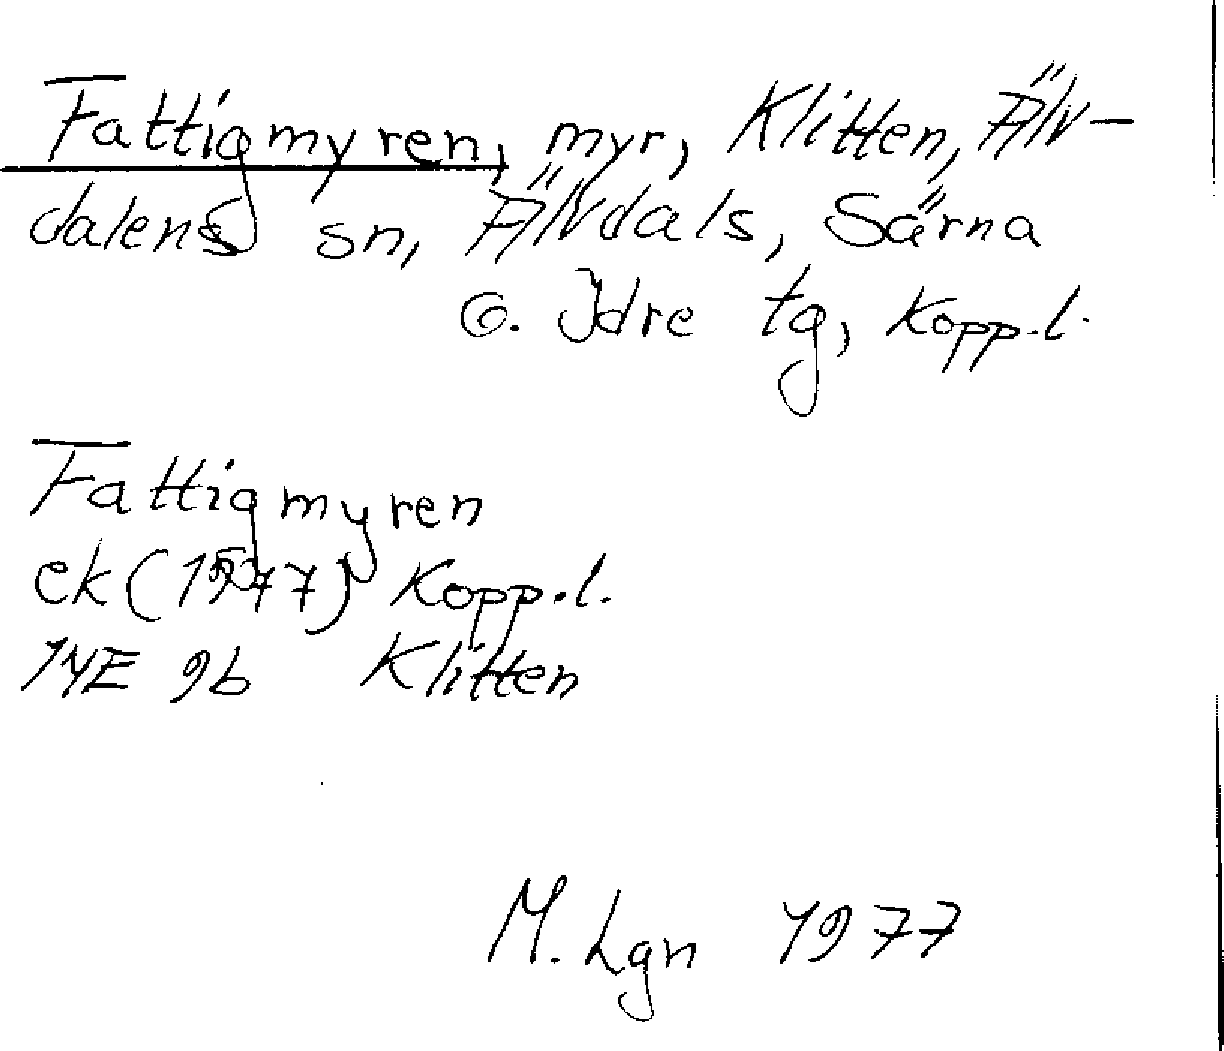 Fattigmyren, myr, Klitten, Älv-
dalens sn, Älvdals, Särna
o. Idre tg, Kopp.l.
Fattigmyren
ek (1977) Kopp.l.
14E 9b Klitten
M. Lgn 1977